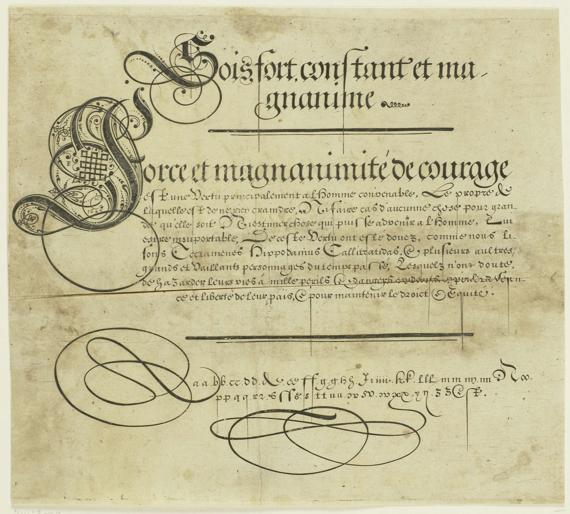 Sois fort, constant et ma-
gnanime.
Force et magnanimité de courage
est une Vertu principalement a l'Homme convenable, Le propre de
laquelle est de ne rien craindre, Ni faire cas d'aucune chose pour gran
de qu'elle soit N'estimer chose qui puisse advenir a l'Homme,
estre insuportable, De ceste Vertu ont esté douez, comme nous li
sons Hippodamus Callicratidas, & plusieurs aultres
grands et Vaillants personnages du temps passé, Lesquelz n'ont douté,
de hazarder leurs vies à mille perils &
ce et liberté de leur pais, & pour maintenir le droict & Equité.
a a. bb. cc. dd. ee ff g. g h h. kk. lll. m m
p p q q r r. s s s t t u u